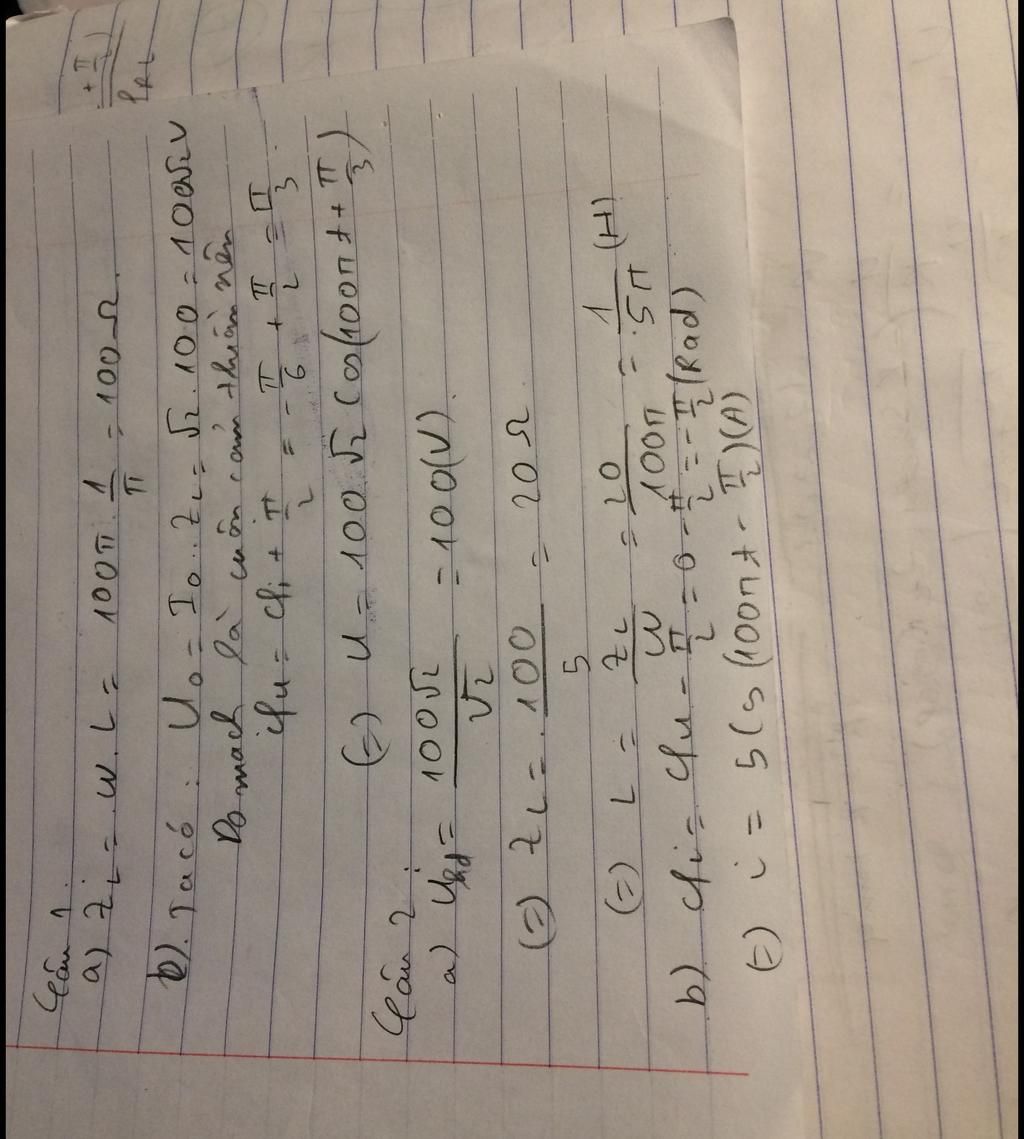 Câu 1.
a) Z_L = ω.L = 100π. 1/π = 100Ω.
b). Ta có : U₀ = I₀.Z_L = √2.100 = 100√2 V
Do mạch là cuộn cảm thuần nên
φu = φi + π/2 = -π/6 + π/2 = π/3.
(=) u = 100√2 cos(100πt + π/3)
Câu 2.
a) U_hd = 100√2/√2 = 100(V).
(=) Z_L = 100/5 = 20Ω
(=) L = Z_L/ω = 20/100π = 1/5π (H)
b) φi = φu - π/2 = 0 - π/2 = -π/2 (Rad)
(=) i = 5 Cos (100πt - π/2)(A)
+ π/2)